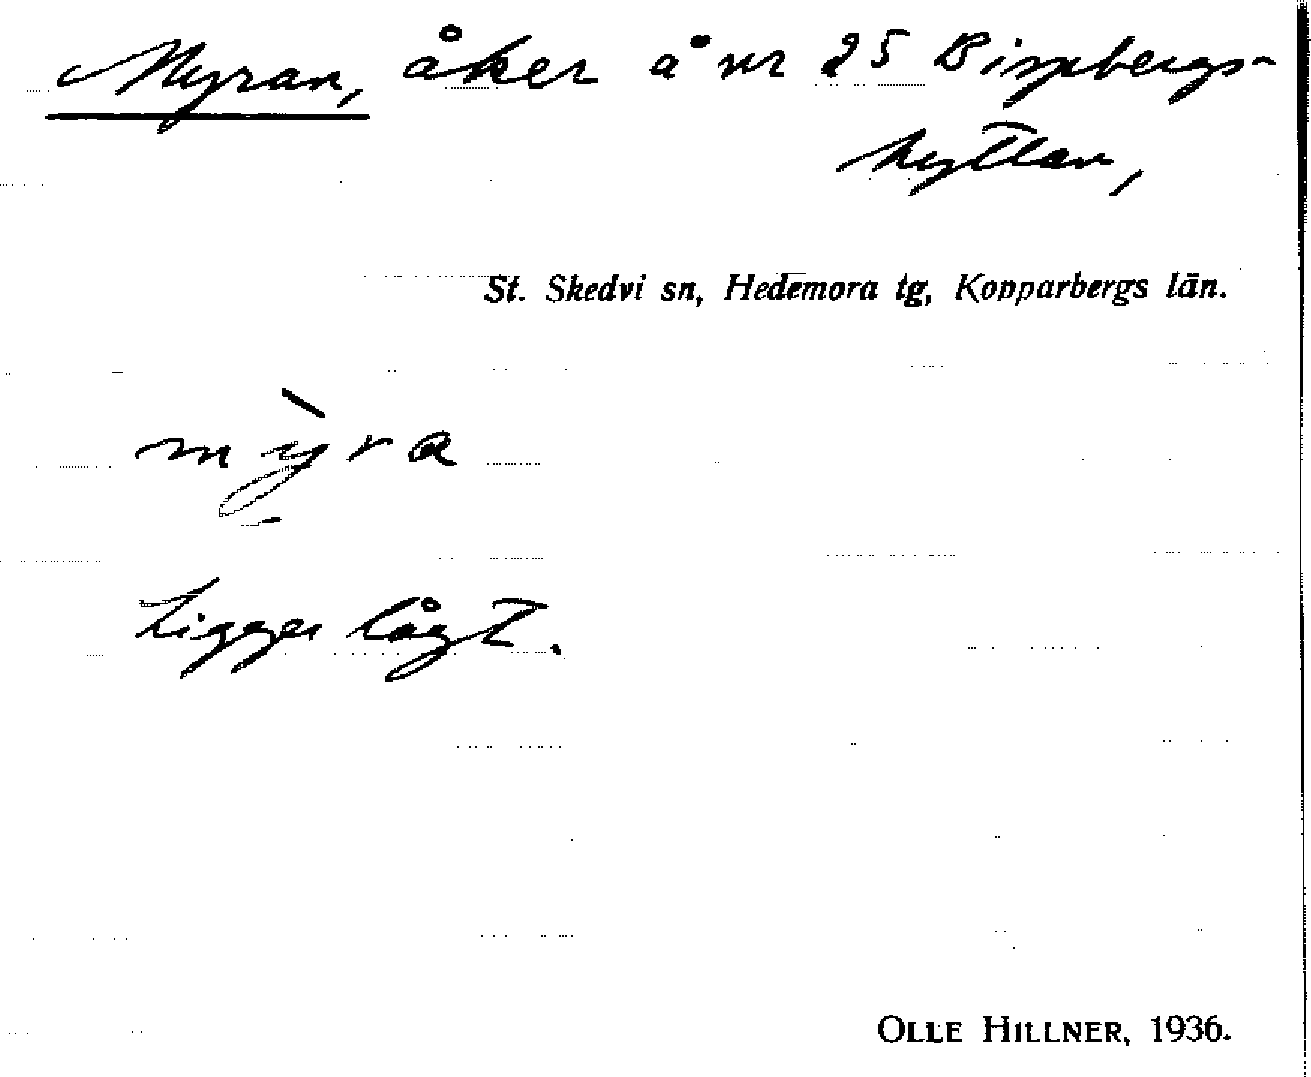 Myran, åker å nr 25 Bispbergs-
hyttan,
St. Skedvi sn, Hedemora tg, Kopparbergs län.
mỳra
Ligger lågt.
OLLE HILLNER, 1936.